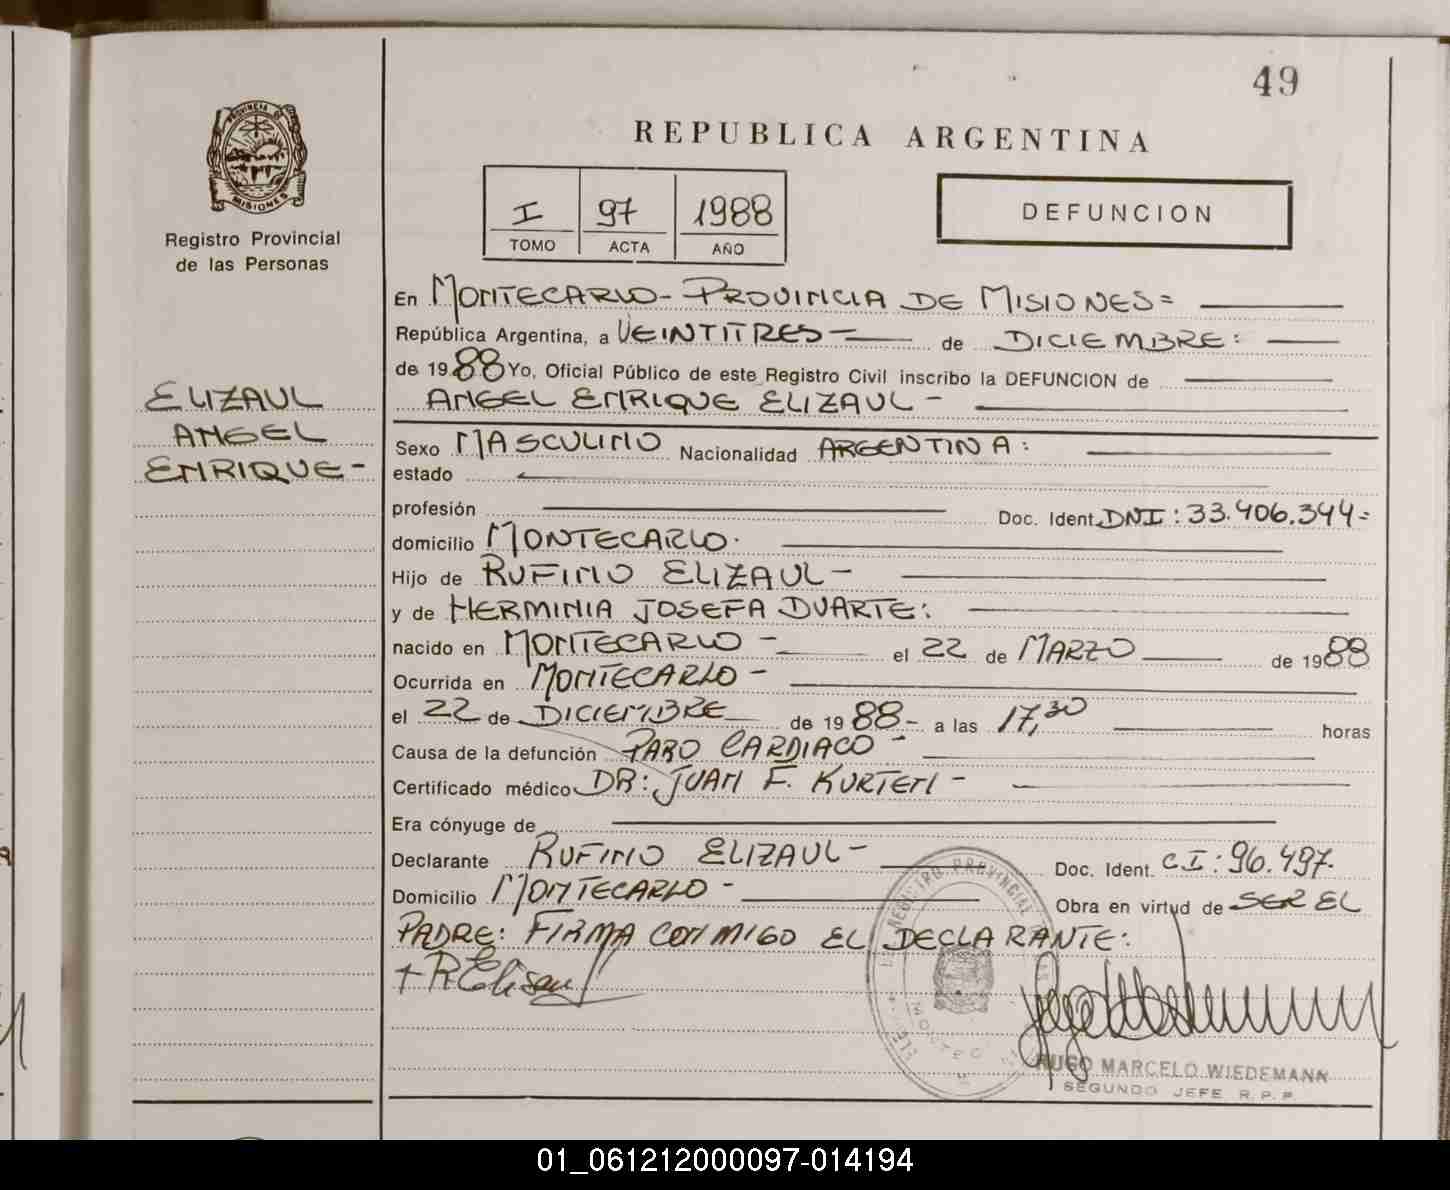 49
REPUBLICA ARGENTINA
PROVINCIA DE
MISIONES
Registro Provincial
de las Personas
I 97 1988
TOMO ACTA AÑO
DEFUNCION
En MONTECARLO - PROVINCIA DE MISIONES=
República Argentina, a VEINTITRES= de DICIEMBRE:
de 1988 Yo, Oficial Público de este Registro Civil inscribo la DEFUNCION de
ANGEL ENRIQUE ELIZAUL -
ELIZAUL
ANGEL
ENRIQUE-
Sexo MASCULINO Nacionalidad ARGENTINA:
estado
profesión Doc. Ident. DNI: 33.406.344=
domicilio MONTECARLO.
Hijo de RUFINO ELIZAUL -
y de HERMINIA JOSEFA DUARTE:
nacido en MONTECARLO - el 22 de MARZO de 1988
Ocurrida en MONTECARLO -
el 22 de DICIEMBRE de 1988- a las 17,30 horas
Causa de la defunción PARO CARDIACO -
Certificado médico DR: JUAN F. KURTEN -
Era cónyuge de
Declarante RUFINO ELIZAUL - Doc. Ident. C.I: 96.497.
Domicilio MONTECARLO - Obra en virtud de SER EL
PADRE: FIRMA CONMIGO EL DECLARANTE:
REGISTRO PROVINCIAL
HUGO MARCELO WIEDEMANN
SEGUNDO JEFE R.P.P.
01_061212000097-014194